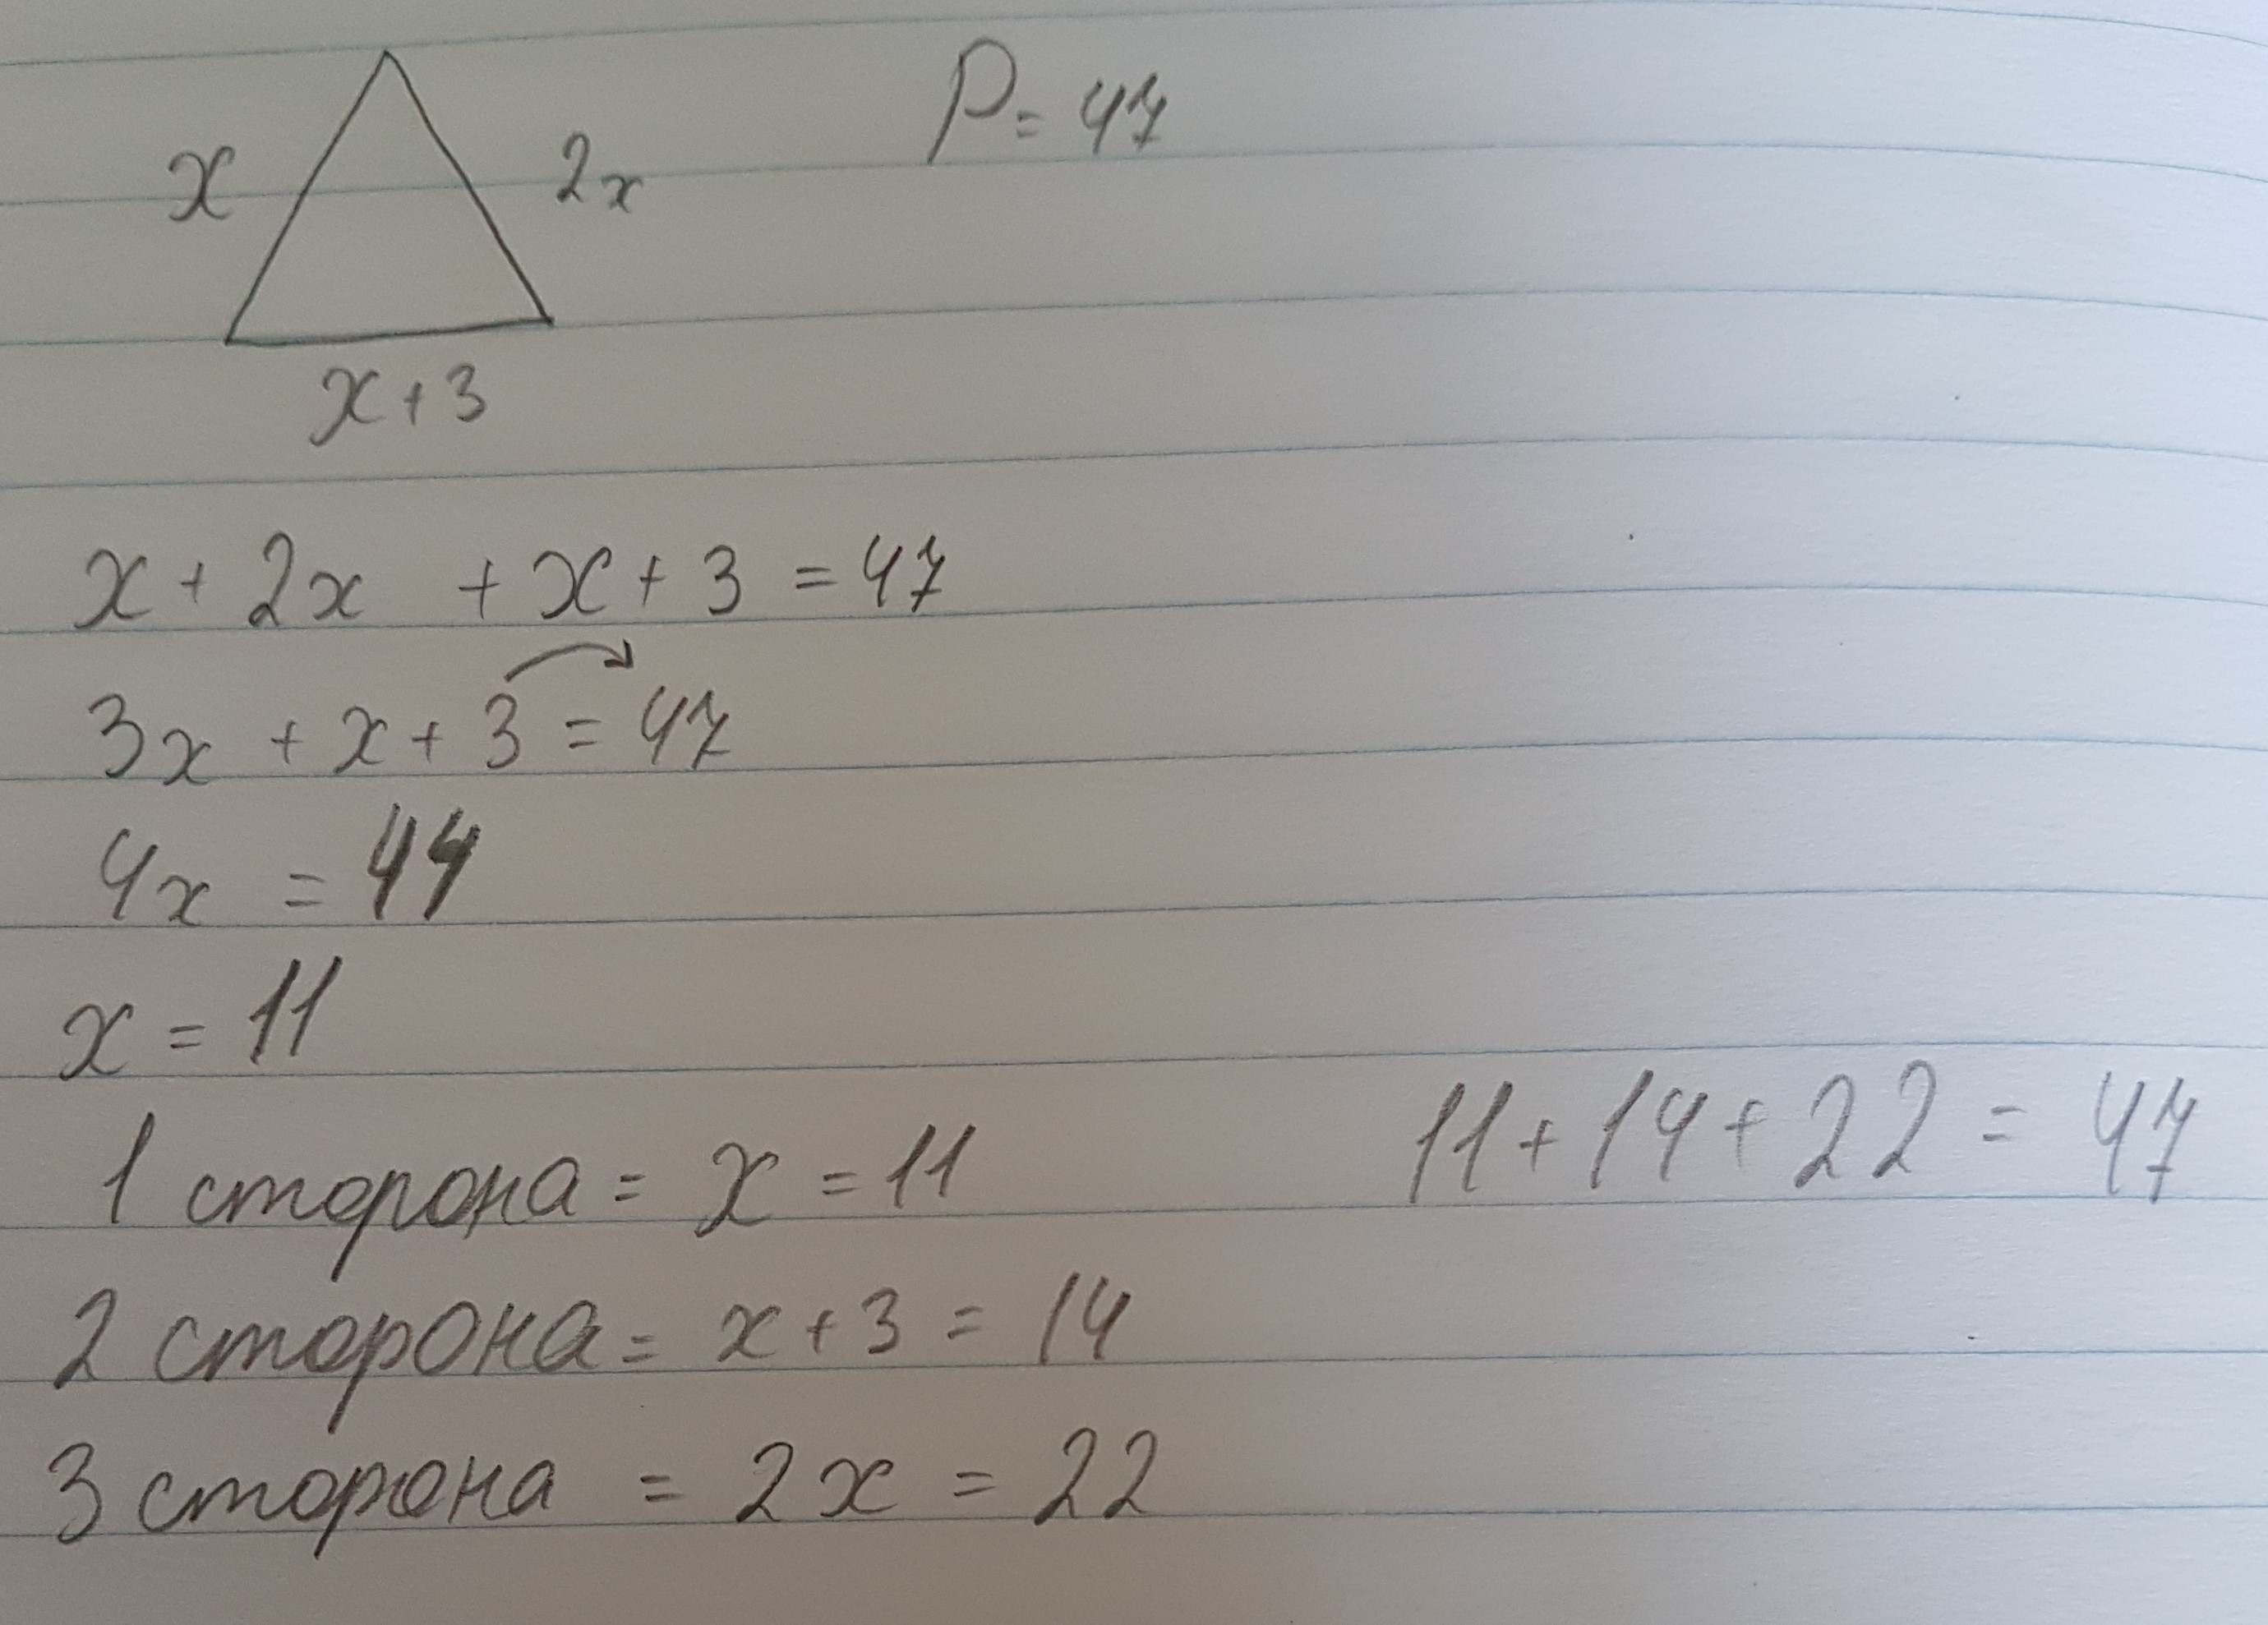 P = 47
x
2x
x + 3
x + 2x + x + 3 = 47
3x + x + 3 = 47
4x = 44
x = 11
1 сторона = x = 11
11 + 14 + 22 = 47
2 сторона = x + 3 = 14
3 сторона = 2x = 22